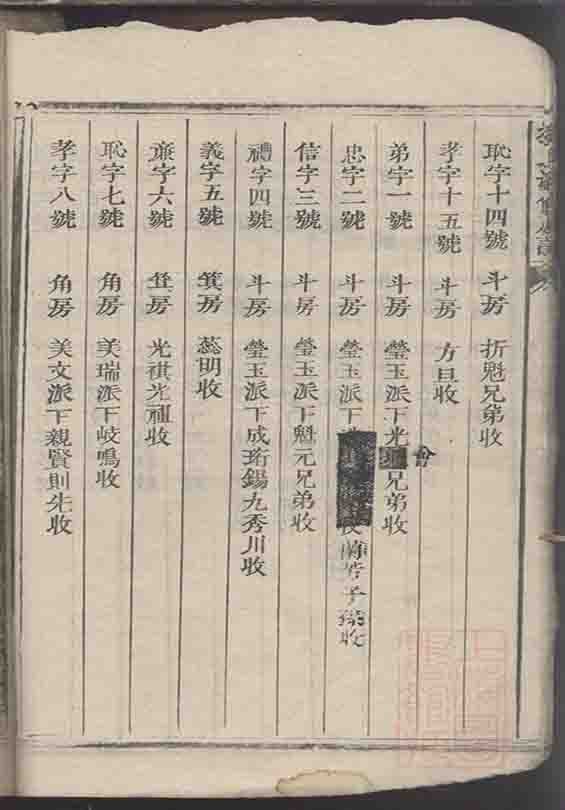 恥字十四號 斗房 折魁兄弟收
孝字十五號 斗房 方旦收
弟字一號 斗房 瑩玉派下光 兄弟收
會
忠字二號 斗房 瑩玉派下 收
信字三號 斗房 瑩玉派下魁元兄弟收
禮字四號 斗房 瑩玉派下成珩錫九秀川收
義字五號 箕房 蕊明收
廉字六號 箕房 光祺光禋收
恥字七號 角房 美瑞派下岐鳴收
孝字八號 角房 美文派下親賢則先收